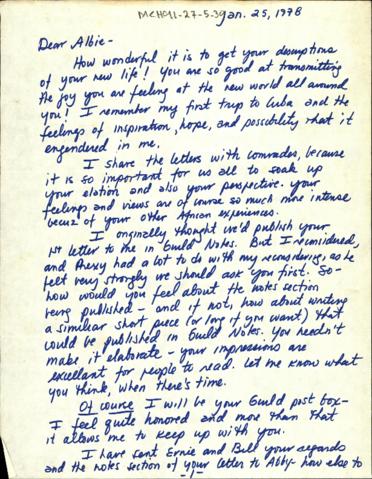 MCH91-27-5-39
Jan. 25, 1978
Dear Albie-
How wonderful it is to get your descriptions
of your new life! You are so good at transmitting
the joy you are feeling at the new world all around
you! I remember my first trip to Cuba and the
feelings of inspiration, hope, and possibility that it
engendered in me.
I share the letters with comrades, because
it is so important for us all to soak up
your elation and also your perspective. Your
feelings and views are of course so much more intense
becuz of your other African experiences.
I originally thought we'd publish your
1st letter to me in Guild Notes. But I reconsidered,
and had a lot to do with my reconsidering, as he
felt very strongly we should ask you first. So-
how would you feel about the notes section
being published - and if not, how about writing
a similiar short piece (or long if you want) that
could be published in Guild Notes. You needn't
make it elaborate - your impressions are
excellant for people to read. Let me know what
you think, when there's time.
Of course I will be your Guild post box-
I feel quite honored and more than that
it allows me to keep up with you.
I have sent Ernie and Bill your regards
and the notes section of your letter to Abby- how else to
-1-